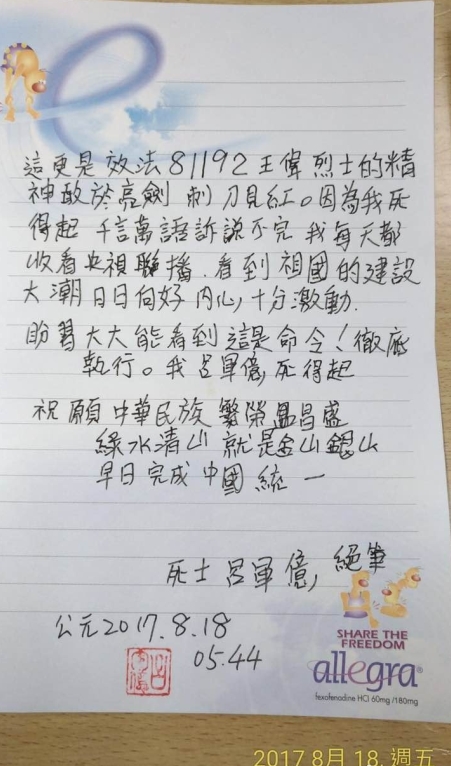 這更是效法81192王偉烈士的精
神敢於亮劍 刺刀見紅。因為我死
得起 千言萬語訴説不完 我每天都
收看央視聯播.看到祖國的建設
大潮日日向好 內心十分激動.
盼習大大能看到 這是命令!徹底
執行。我呂軍億,死得起
祝願中華民族 繁榮昌盛
綠水清山 就是金山銀山
早日完成中國統一
死士 呂軍億,絕筆
公元2017.8.18
05:44
SHARE THE
FREEDOM
allegra®
fexofenadine HCl 60mg/180mg
2017 8月 18, 週五